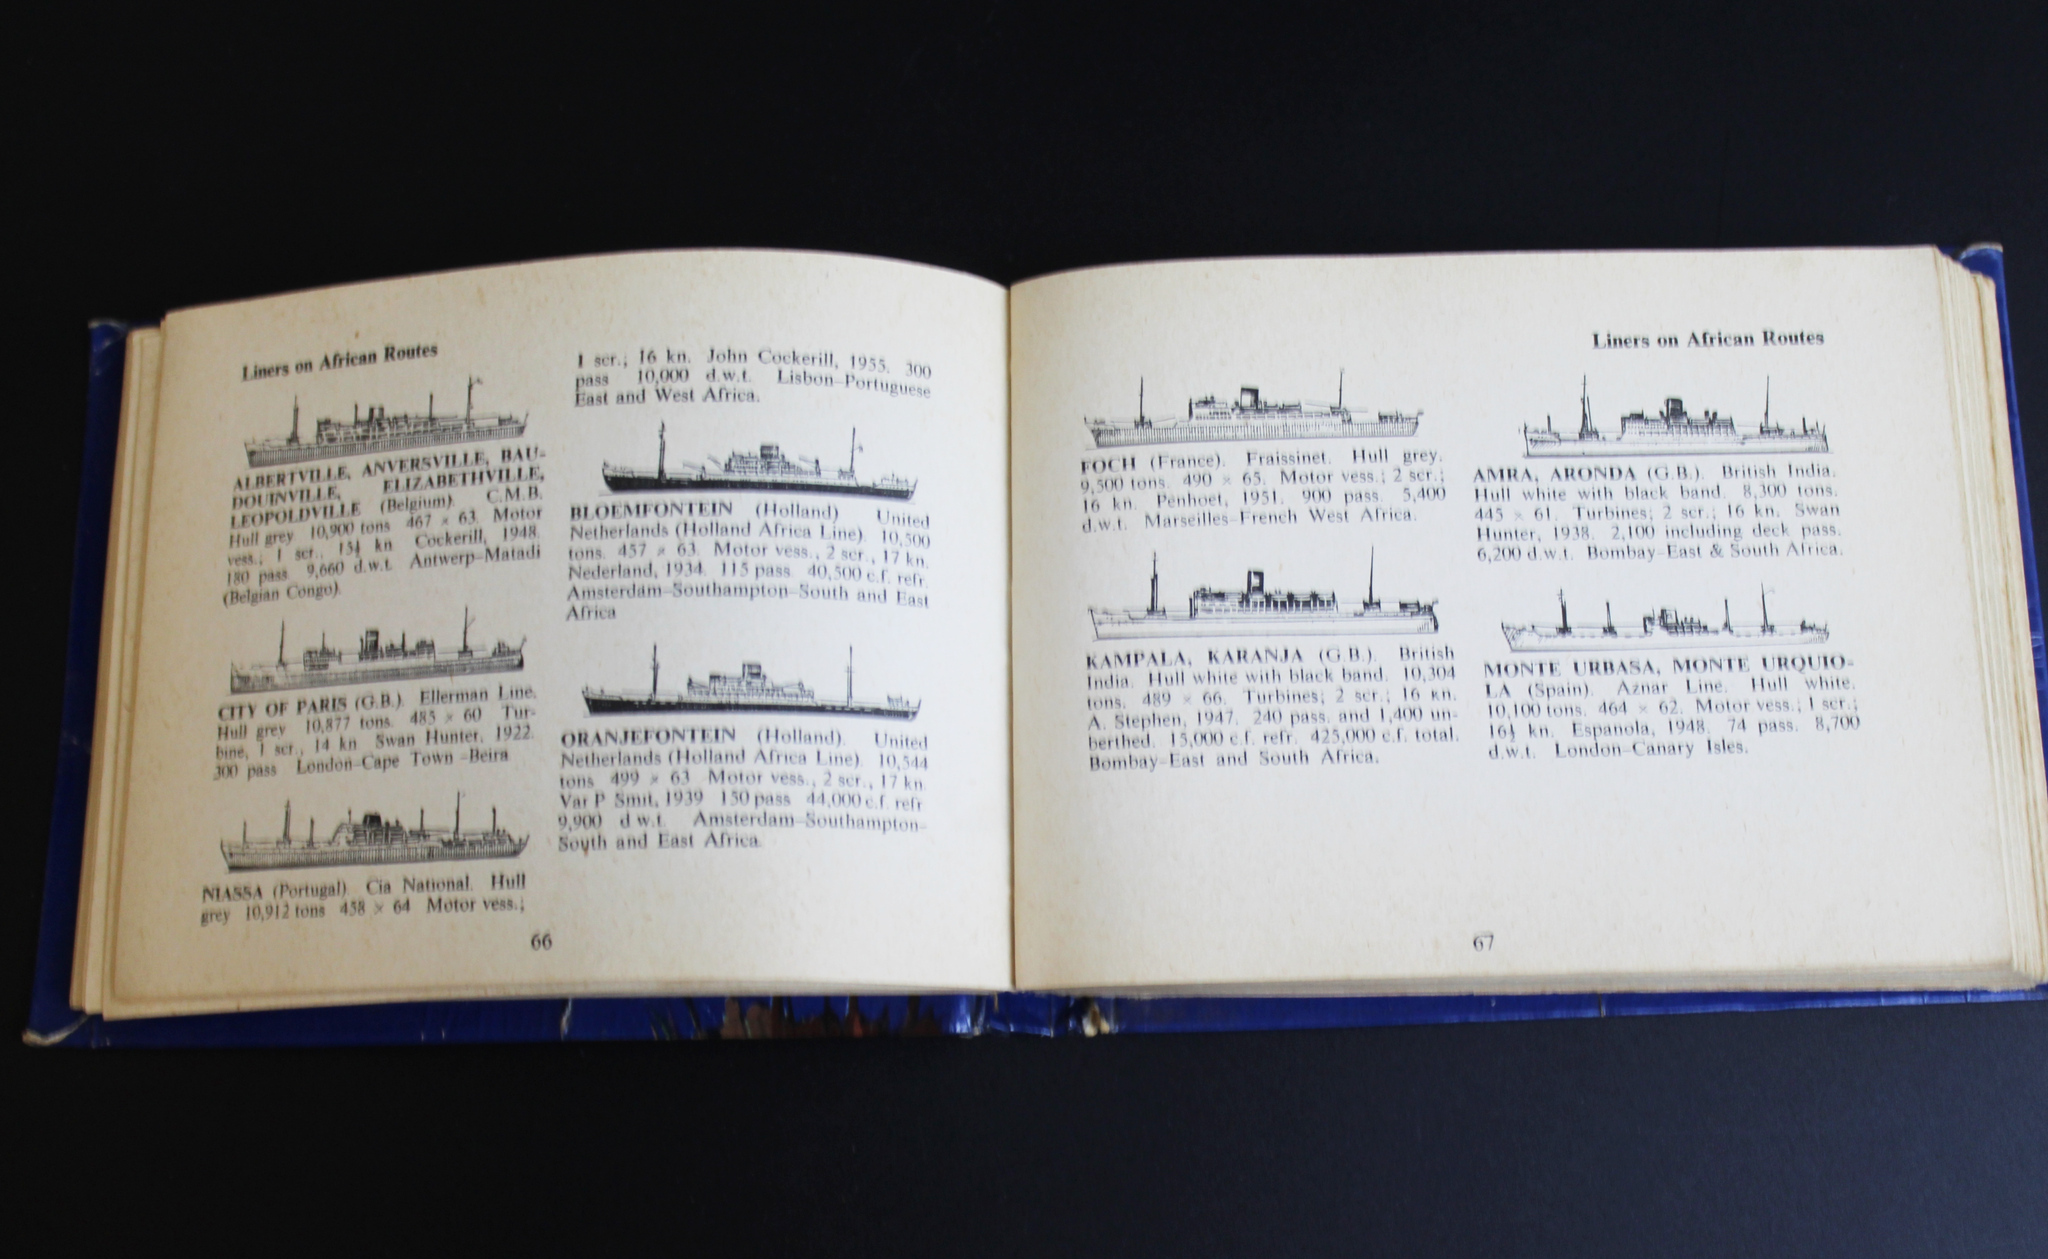 Liners on African Routes
ALBERTVILLE, ANVERSVILLE, BAU-
DOUINVILLE, ELIZABETHVILLE,
LEOPOLDVILLE (Belgium). C.M.B.
Hull grey 10,900 tons 467 × 63. Motor
vess.; 1 scr., 15½ kn Cockerill, 1948.
180 pass. 9,660 d.w.t. Antwerp–Matadi
(Belgian Congo).
CITY OF PARIS (G.B.). Ellerman Line.
Hull grey 10,877 tons. 485 × 60 Tur-
bine, 1 scr., 14 kn Swan Hunter, 1922.
300 pass London–Cape Town–Beira
NIASSA (Portugal) Cia National. Hull
grey 10,912 tons 458 × 64 Motor vess.;
1 scr.; 16 kn. John Cockerill, 1955. 300
pass 10,000 d.w.t. Lisbon–Portuguese
East and West Africa.
BLOEMFONTEIN (Holland) United
Netherlands (Holland Africa Line). 10,500
tons. 457 × 63. Motor vess., 2 scr., 17 kn.
Nederland, 1934. 115 pass 40,500 c.f. refr.
Amsterdam–Southampton–South and East
Africa
ORANJEFONTEIN (Holland). United
Netherlands (Holland Africa Line). 10,544
tons 499 × 63 Motor vess., 2 scr., 17 kn.
Var P Smit, 1939 150 pass 44,000 c.f. refr
9,900 d.w.t. Amsterdam–Southampton–
South and East Africa.
66
Liners on African Routes
FOCH (France). Fraissinet. Hull grey.
9,500 tons. 490 × 65. Motor vess.; 2 scr.;
16 kn. Penhoet, 1951. 900 pass. 5,400
d.w.t. Marseilles–French West Africa.
KAMPALA, KARANJA (G.B.). British
India. Hull white with black band. 10,304
tons. 489 × 66. Turbines; 2 scr.; 16 kn.
A. Stephen, 1947. 240 pass. and 1,400 un-
berthed. 15,000 c.f. refr. 425,000 c.f. total.
Bombay–East and South Africa.
AMRA, ARONDA (G.B.). British India.
Hull white with black band. 8,300 tons.
445 × 61. Turbines; 2 scr.; 16 kn. Swan
Hunter, 1938. 2,100 including deck pass.
6,200 d.w.t. Bombay–East & South Africa.
MONTE URBASA, MONTE URQUIO-
LA (Spain). Aznar Line. Hull white.
10,100 tons. 464 × 62. Motor vess.; 1 scr.;
16½ kn. Espanola, 1948. 74 pass. 8,700
d.w.t. London–Canary Isles.
67